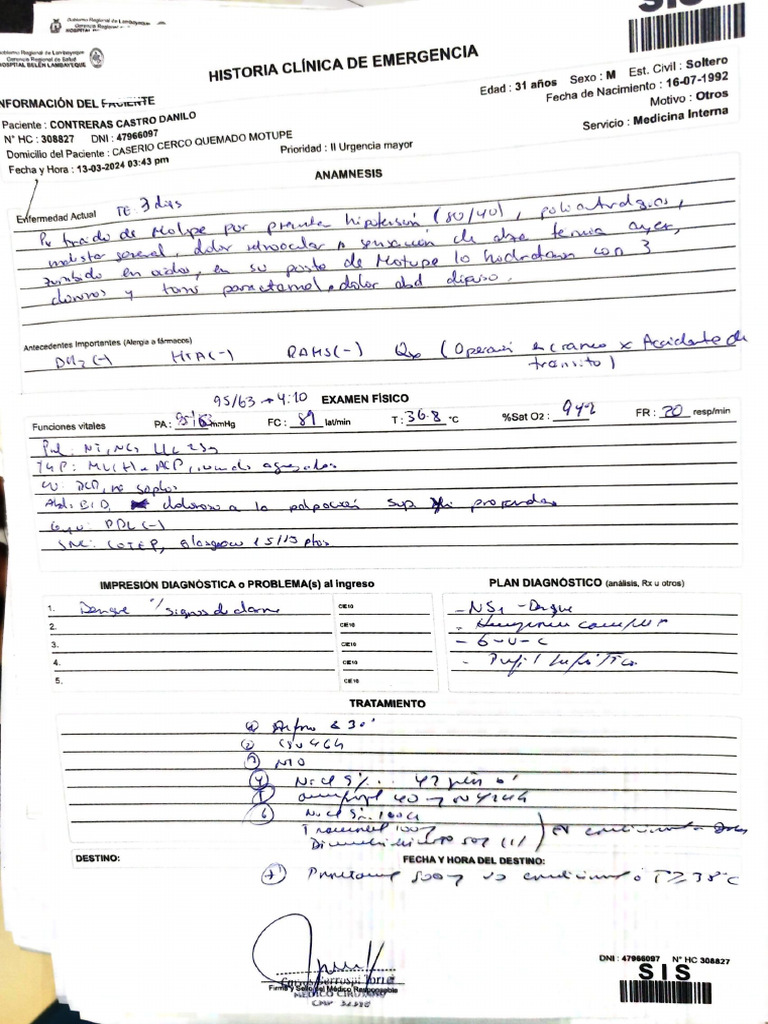 Gobierno Regional de Lambayeque
SIS
Gobierno Regional de Lambayeque
Gerencia Regional de Salud
HOSPITAL BELÉN LAMBAYEQUE
HISTORIA CLÍNICA DE EMERGENCIA
INFORMACIÓN DEL PACIENTE
Edad : 31 años Sexo : M Est. Civil : Soltero
Paciente : CONTRERAS CASTRO DANILO
Fecha de Nacimiento : 16-07-1992
N° HC : 308827 DNI : 47966097
Motivo : Otros
Domicilio del Paciente : CASERIO CERCO QUEMADO MOTUPE
Prioridad : II Urgencia mayor
Servicio : Medicina Interna
Fecha y Hora : 13-03-2024 03:43 pm
ANAMNESIS
Enfermedad Actual TE: 3 dias
Pte traido de Motupe por presentar hipotensión (80/40), poliartralgias,
malestar general, dolor retroocular y sensación de alza termica ayer,
zumbido en oidos, en su posta de Motupe lo hidrataron con 3
cloruros y tomo paracetamol, dolor abd difuso.
Antecedentes Importantes (Alergia a fármacos)
DM2 (-) HTA (-) RAMS (-) Qx (Operación en craneo x Accidente de
transito)
95/63 → 4:10 EXAMEN FÍSICO
Funciones vitales PA : 95/63 mmHg FC : 89 lat/min T : 36.8 °C %Sat O2 : FR : 20 resp/min
Piel:
TyP: MV(+) en ACP, agregados
CV:
Abd: doloroso a la palpación sup profunda
PPL (-)
SNC: LOTEP, Glasgow 15/15 ptos
IMPRESIÓN DIAGNÓSTICA o PROBLEMA(s) al ingreso
PLAN DIAGNÓSTICO (análisis, Rx u otros)
1. Dengue c/ signos de alarma CIE10
2. CIE10
3. CIE10
4. CIE10
5. CIE10
- NS1 - Dengue
- Hemograma completo
- G-U-C
- Perfil hepático
TRATAMIENTO
①
② CFV
③
④ NaCl 9‰
⑤ omeprazol 40 mg
⑥ NaCl 9‰ 100cc
Tramadol 100mg
Dimenhidrinato 50g (1) EV condicional a dolor
DESTINO:
FECHA Y HORA DEL DESTINO:
⑦ Paracetamol 500mg VO condicional a T≥38°C
Firma y Sello del Médico Responsable
MEDICO CIRUJANO
DNI : 47966097 N° HC 308827
SIS